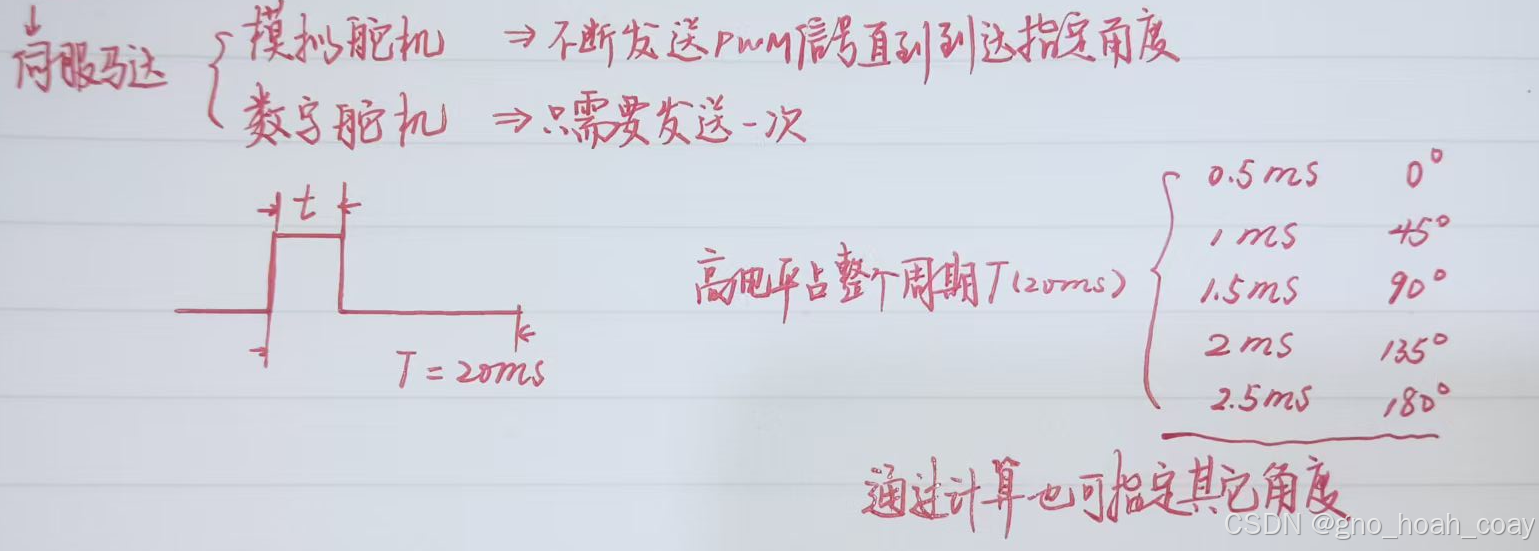 伺服马达
模拟舵机 ⇒ 不断发送PWM信号直到到达指定角度
数字舵机 ⇒ 只需要发送一次
t
T = 20ms
高电平占整个周期T(20ms)
0.5ms 0°
1ms 45°
1.5ms 90°
2ms 135°
2.5ms 180°
通过计算也可指定其它角度.
CSDN @gno_hoah_coay